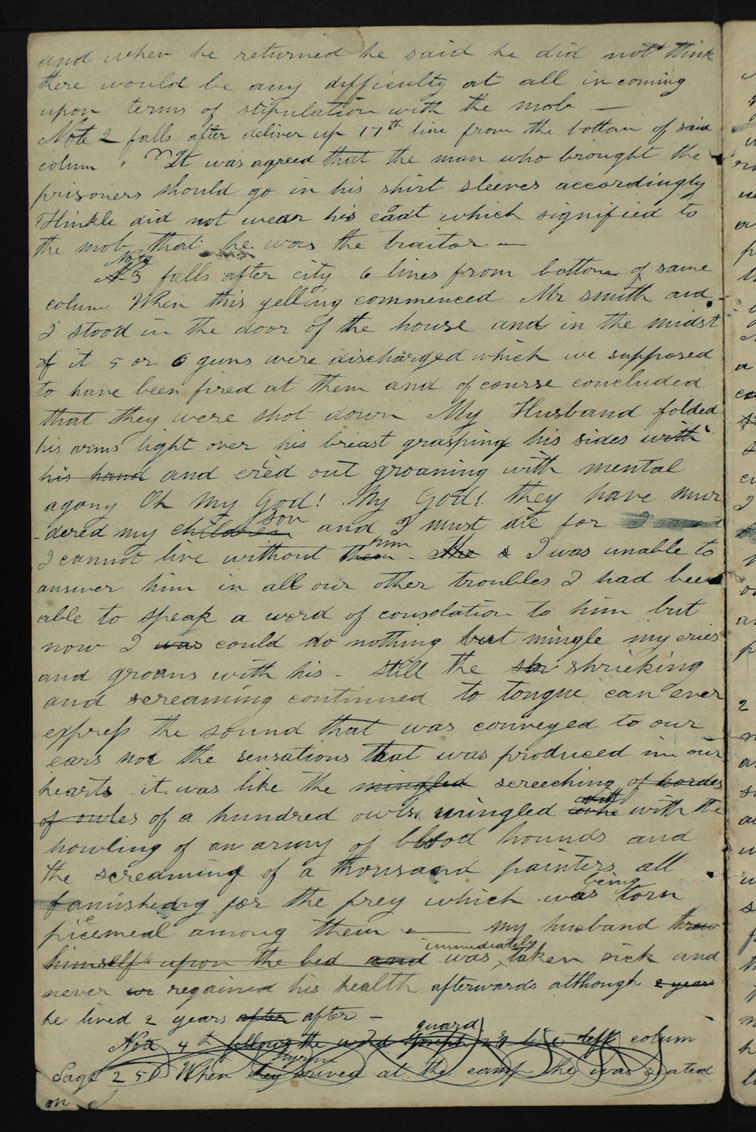 and when he returned he said he did not think
there would be any difficulty at all in coming
upon terms of stipulation with the mob —
Note 2 falls after deliver up 17th line from the bottom of said
colum. "It was agreed that the man who brought the
prisoners should go in his shirt sleeves accordingly
Hinkle did not wear his coat which signified to
the mob that he was the traitor —
Note 3 falls after city 6 lines from bottom of same
colum When this yelling commenced Mr Smith and
I stood in the door of the house and in the midst
of it 5 or 6 guns were discharged which we supposed
to have been fired at them and of course concluded
that they were shot down My Husband folded
his arms tight over his breast grasping his sides with
his hand and cried out groaning with mental
agony Oh my God! My God! they have mur
-dered my children son and I must die for I
I cannot live without them him - I was unable to
answer him in all our other troubles I had been
able to speak a word of consolation to him but
now I was could do nothing but mingle my cries
and groans with his - still the shrieking
and screaming continued to tongue can ever
express the sound that was conveyed to our
ears nor the sensations that was produced in our
hearts it was like the mingled screeching of hordes
of owles of a hundred owls mingled with the
howling of an army of blood hounds and
the screaming of a thousand painters all
famishing for the prey which was being torn
piecemeal among them — my husband threw
himself upon the bed and was immediately taken sick and
never regained his health afterwards although 2 years
he lived 2 years after after —
Note 4th follows the word guard line colum
Page 250 When they arived at the camp he was seated